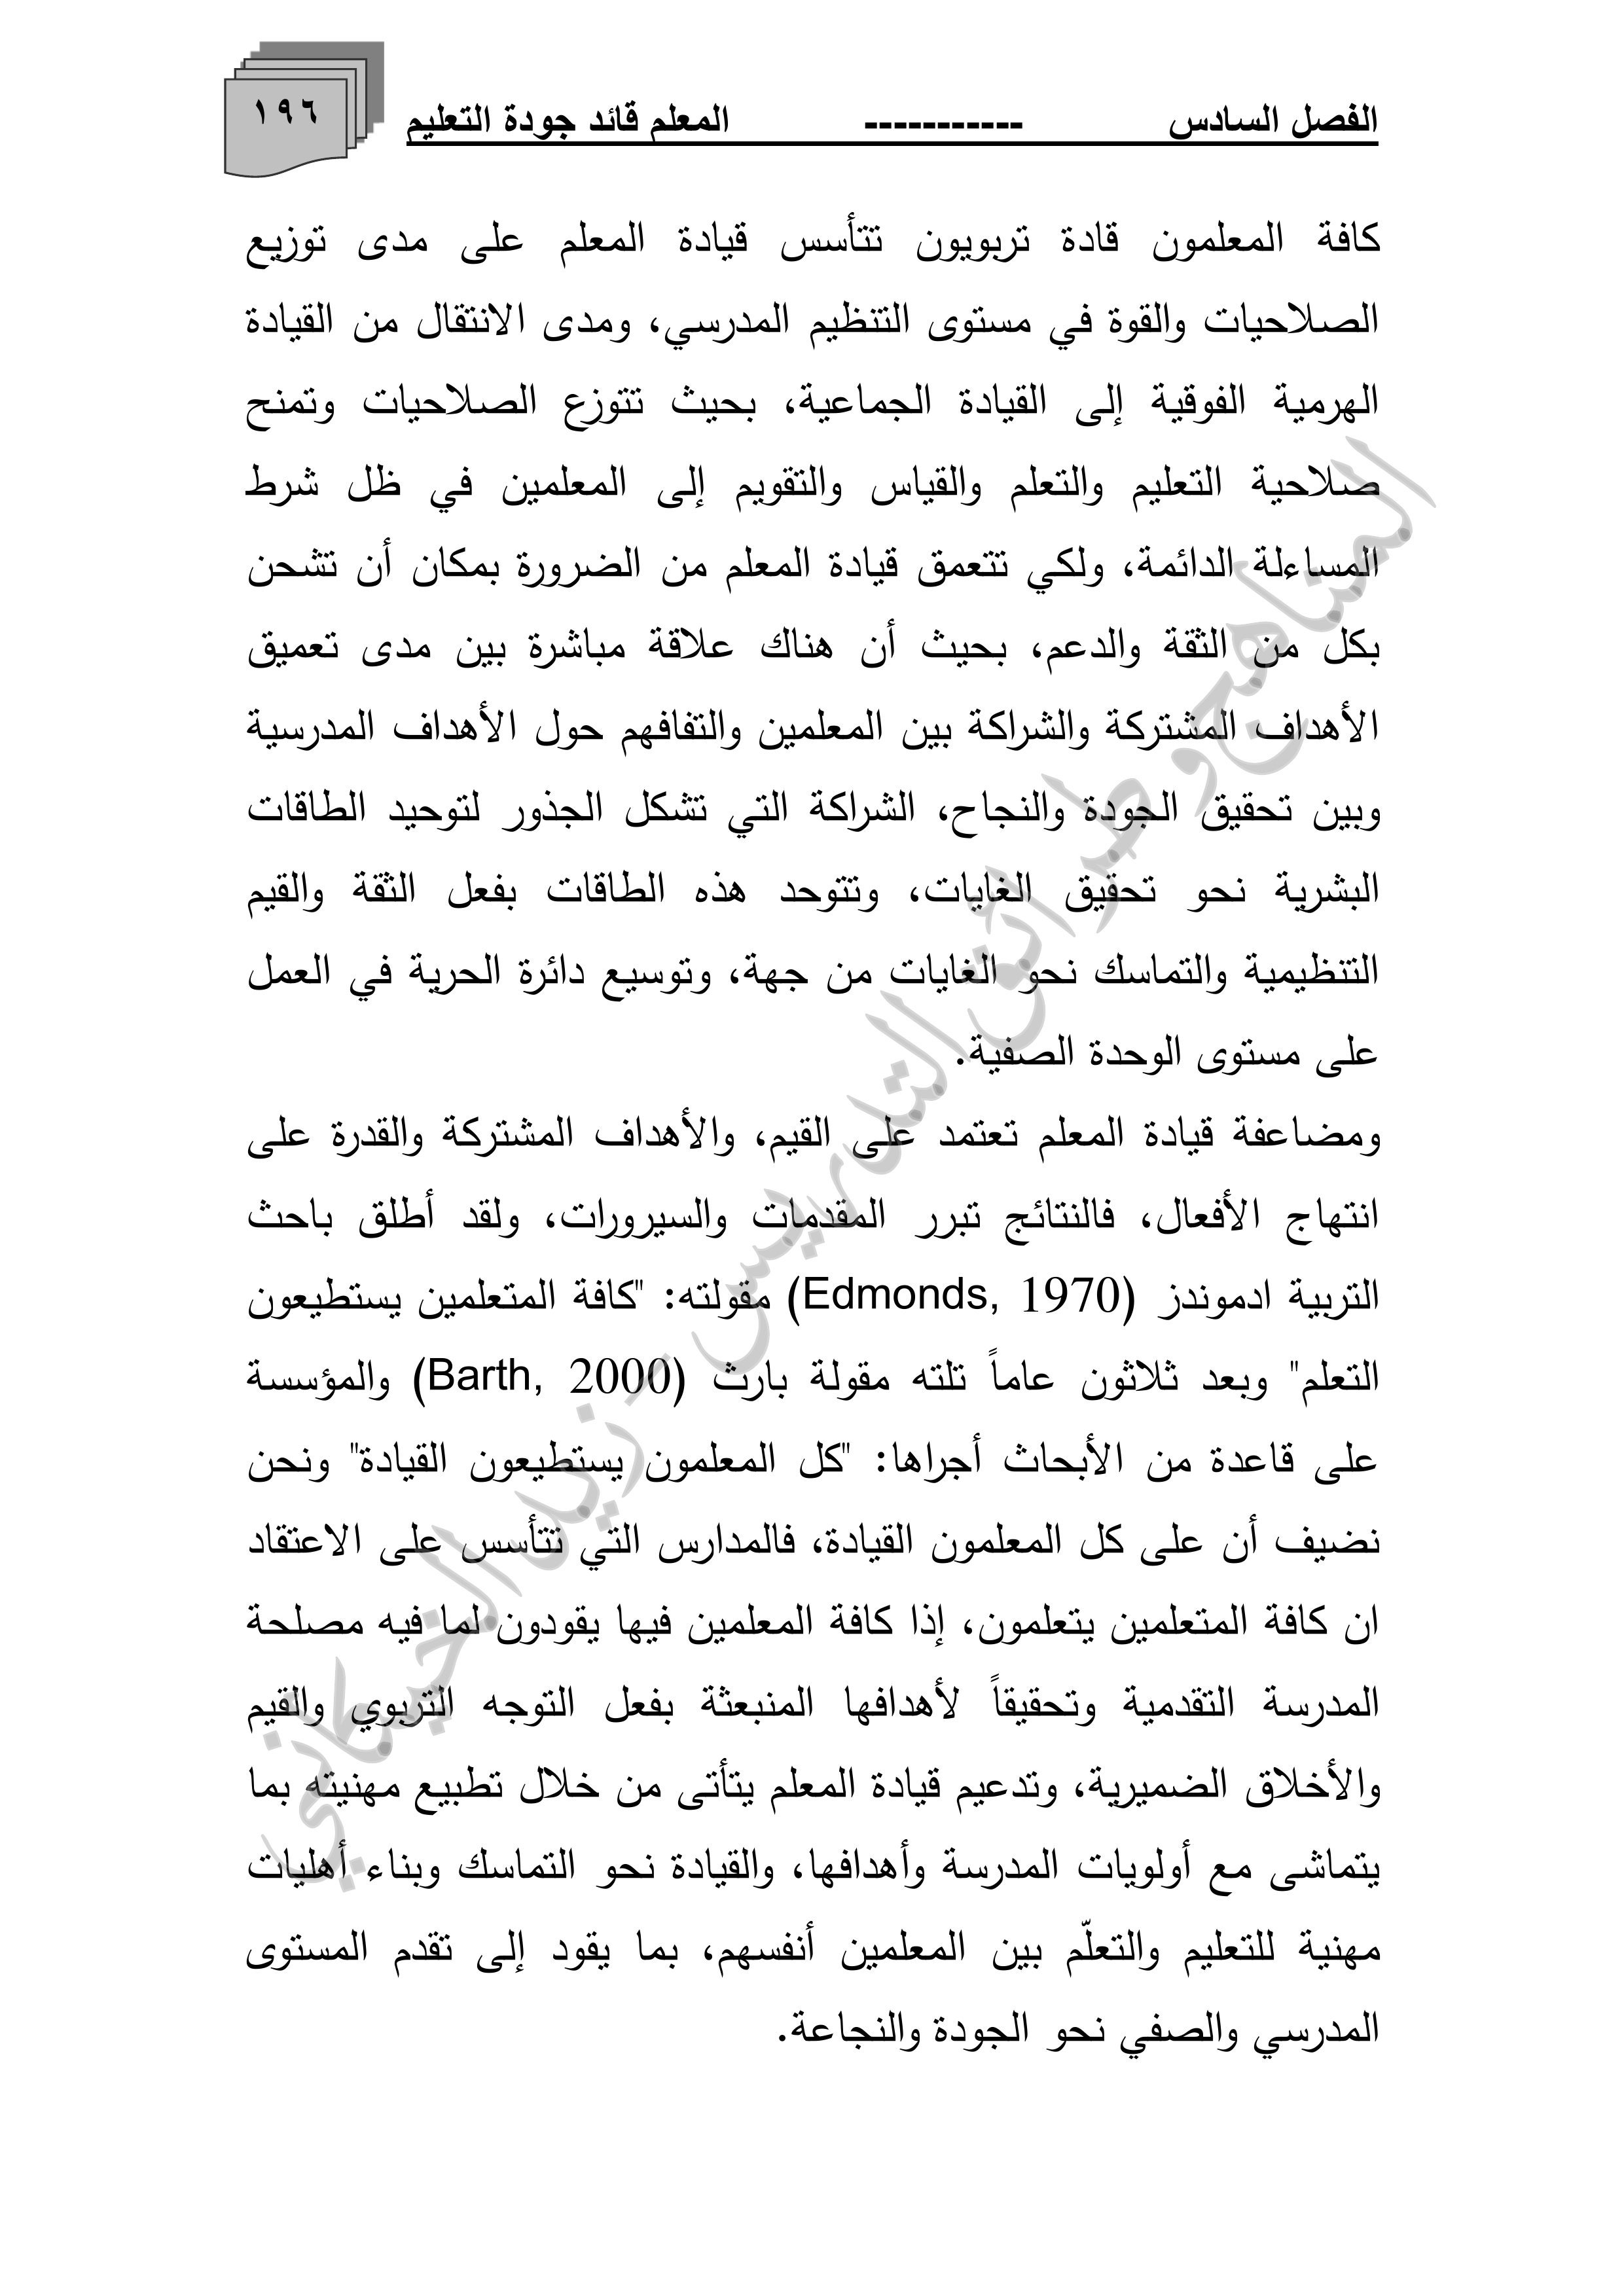 الفصل السادس ----------- المعلم قائد جودة التعليم
١٩٦
كافة المعلمون قادة تربويون تتأسس قيادة المعلم على مدى توزيع
الصلاحيات والقوة في مستوى التنظيم المدرسي، ومدى الانتقال من القيادة
الهرمية الفوقية إلى القيادة الجماعية، بحيث تتوزع الصلاحيات وتمنح
صلاحية التعليم والتعلم والقياس والتقويم إلى المعلمين في ظل شرط
المساءلة الدائمة، ولكي تتعمق قيادة المعلم من الضرورة بمكان أن تشحن
بكل من الثقة والدعم، بحيث أن هناك علاقة مباشرة بين مدى تعميق
الأهداف المشتركة والشراكة بين المعلمين والتفافهم حول الأهداف المدرسية
وبين تحقيق الجودة والنجاح، الشراكة التي تشكل الجذور لتوحيد الطاقات
البشرية نحو تحقيق الغايات، وتتوحد هذه الطاقات بفعل الثقة والقيم
التنظيمية والتماسك نحو الغايات من جهة، وتوسيع دائرة الحرية في العمل
على مستوى الوحدة الصفية.
ومضاعفة قيادة المعلم تعتمد على القيم، والأهداف المشتركة والقدرة على
انتهاج الأفعال، فالنتائج تبرر المقدمات والسيرورات، ولقد أطلق باحث
التربية ادموندز (Edmonds, 1970) مقولته: "كافة المتعلمين يستطيعون
التعلم" وبعد ثلاثون عاماً تلته مقولة بارث (Barth, 2000) والمؤسسة
على قاعدة من الأبحاث أجراها: "كل المعلمون يستطيعون القيادة" ونحن
نضيف أن على كل المعلمون القيادة، فالمدارس التي تتأسس على الاعتقاد
ان كافة المتعلمين يتعلمون، إذا كافة المعلمين فيها يقودون لما فيه مصلحة
المدرسة التقدمية وتحقيقاً لأهدافها المنبعثة بفعل التوجه التربوي والقيم
والأخلاق الضميرية، وتدعيم قيادة المعلم يتأتى من خلال تطبيع مهنيته بما
يتماشى مع أولويات المدرسة وأهدافها، والقيادة نحو التماسك وبناء أهليات
مهنية للتعليم والتعلّم بين المعلمين أنفسهم، بما يقود إلى تقدم المستوى
المدرسي والصفي نحو الجودة والنجاعة.
المناهج وطرائق التدريس - زيد الخيكاني